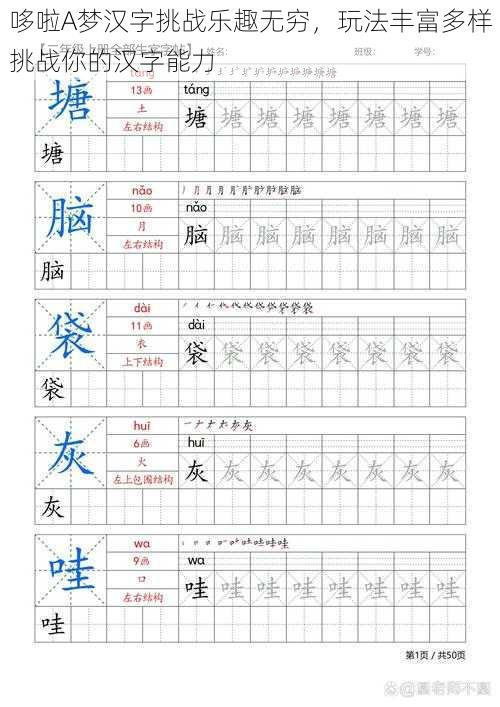 哆啦A梦汉字挑战乐趣无穷，玩法丰富多样
挑战你的汉字能力
【二年级上册全部生字字帖】 姓名： 班级： 学号：
塘 táng
13画 táng
土 塘 塘 塘 塘 塘 塘 塘 塘
左右结构
塘
脑 nǎo
10画 nǎo
月 脑 脑 脑 脑 脑 脑 脑 脑
左右结构
脑
袋 dài
11画 dài
衣 袋 袋 袋 袋 袋 袋 袋 袋
上下结构
袋
灰 huī
6画 huī
火 灰 灰 灰 灰 灰 灰 灰 灰
左上包围结构
灰
哇 wa
9画 wa
口 哇 哇 哇 哇 哇 哇 哇 哇
左右结构
哇
第1页 / 共50页